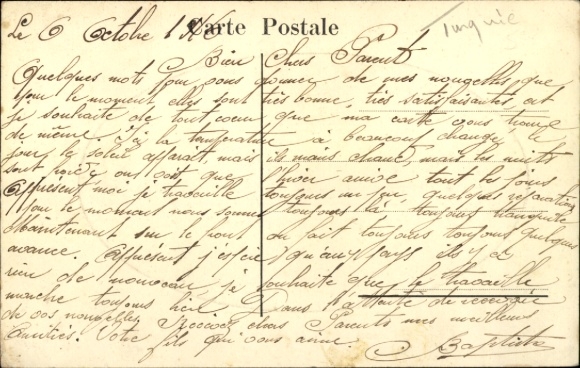 Turquie
Carte Postale
Le 6 Octobre
Bien Chers Parents
Quelques mots pour vous donner de mes nouvelles, que
pour le moment elles sont très bonne, très satisfaisantes et
je souhaite de tout coeur que ma carte vous trouve
de même. Ici la température a beaucoup changé,
jour le soleil apparait, mais
mais les nuits
sont on voit que l'hiver arrive tout les jours
Apprésent moi je travaille toujours un peu, quelques réparations
pour le moment nous sommes toujours là toujours tranquille
Maintenant sur le pont on fait toujours toujours quelques
avance. Apprésent j'espère qu'au pays il y a
rien de nouveau, je souhaite que le travaille
marche toujours bien. Dans l'attente de recevoir
de vos nouvelles, Recevez chers Parents mes meilleurs
amitiés. Votre fils qui vous aime.
Baptiste